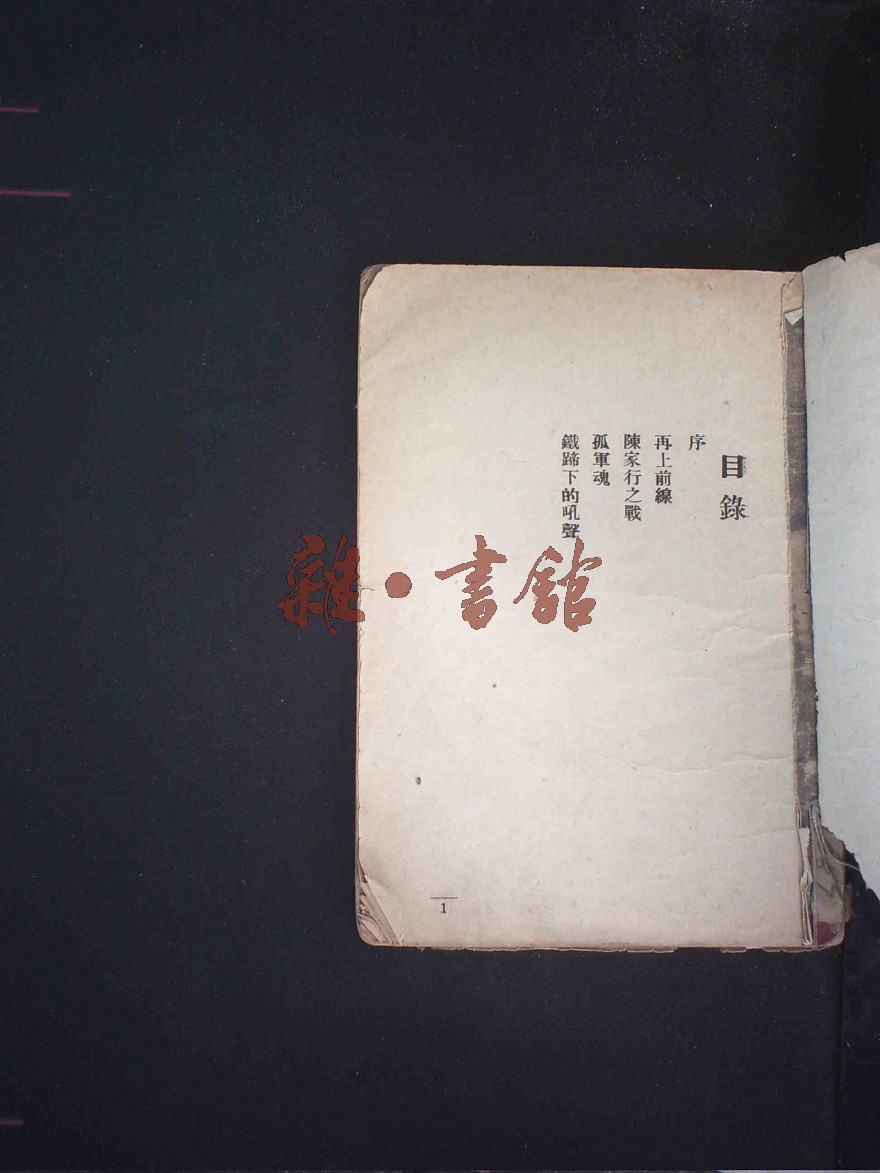 目錄
序
再上前線
陳家行之戰
孤軍魂
鐵蹄下的吼聲
雜·書館
1